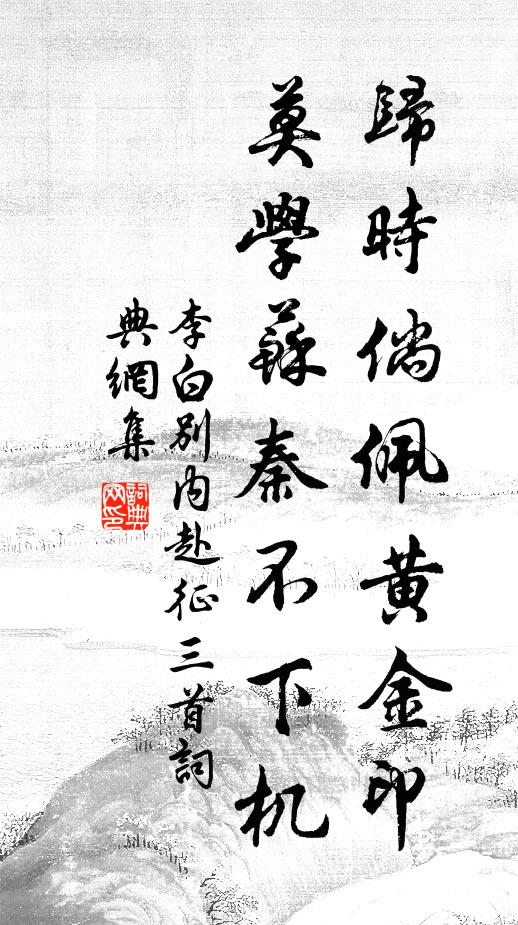 歸時倘佩黄金印
莫學蘇秦不下机
李白别内赴征三首詞
典網集
詞典
网印